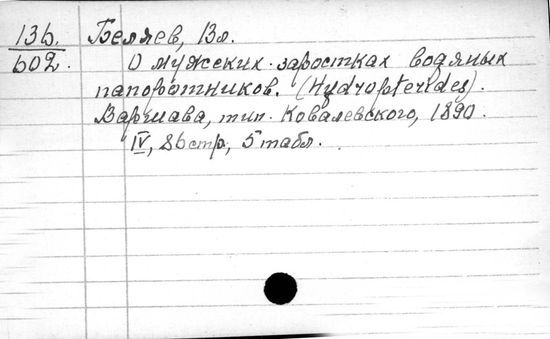 136. Беляев, Вл.
602. О мужских заростках водяных
папоротников. (Hydropterides).
Варшава, тип. Ковалевского, 1890.
IV, 86 стр, 5 табл.